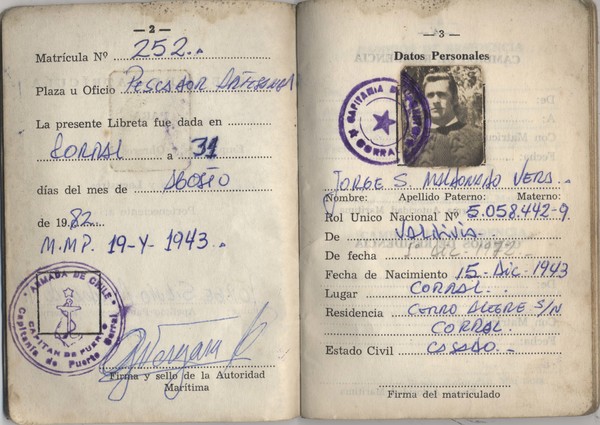 — 2 —
Matrícula Nº 252.
Plaza u Oficio PESCADOR ARTESANAL
La presente Libreta fue dada en
CORRAL a 31
días del mes de AGOSTO
de 1982.
M.M.P. 19-V-1943.
ARMADA DE CHILE
CAPITAN DE PUERTO
Capitanía de Puerto Corral
Firma y sello de la Autoridad
Marítima
— 3 —
Datos Personales
CAPITANIA DE PUERTO
CORRAL
JORGE S. MALDONADO VERA
Nombre: Apellido Paterno: Materno:
Rol Unico Nacional Nº 5.058.442-9
De VALDIVIA
De fecha DIC 1972
Fecha de Nacimiento 15-DIC-1943
Lugar CORRAL
Residencia CERRO ALEGRE S/N
CORRAL
Estado Civil CASADO
Firma del matriculado